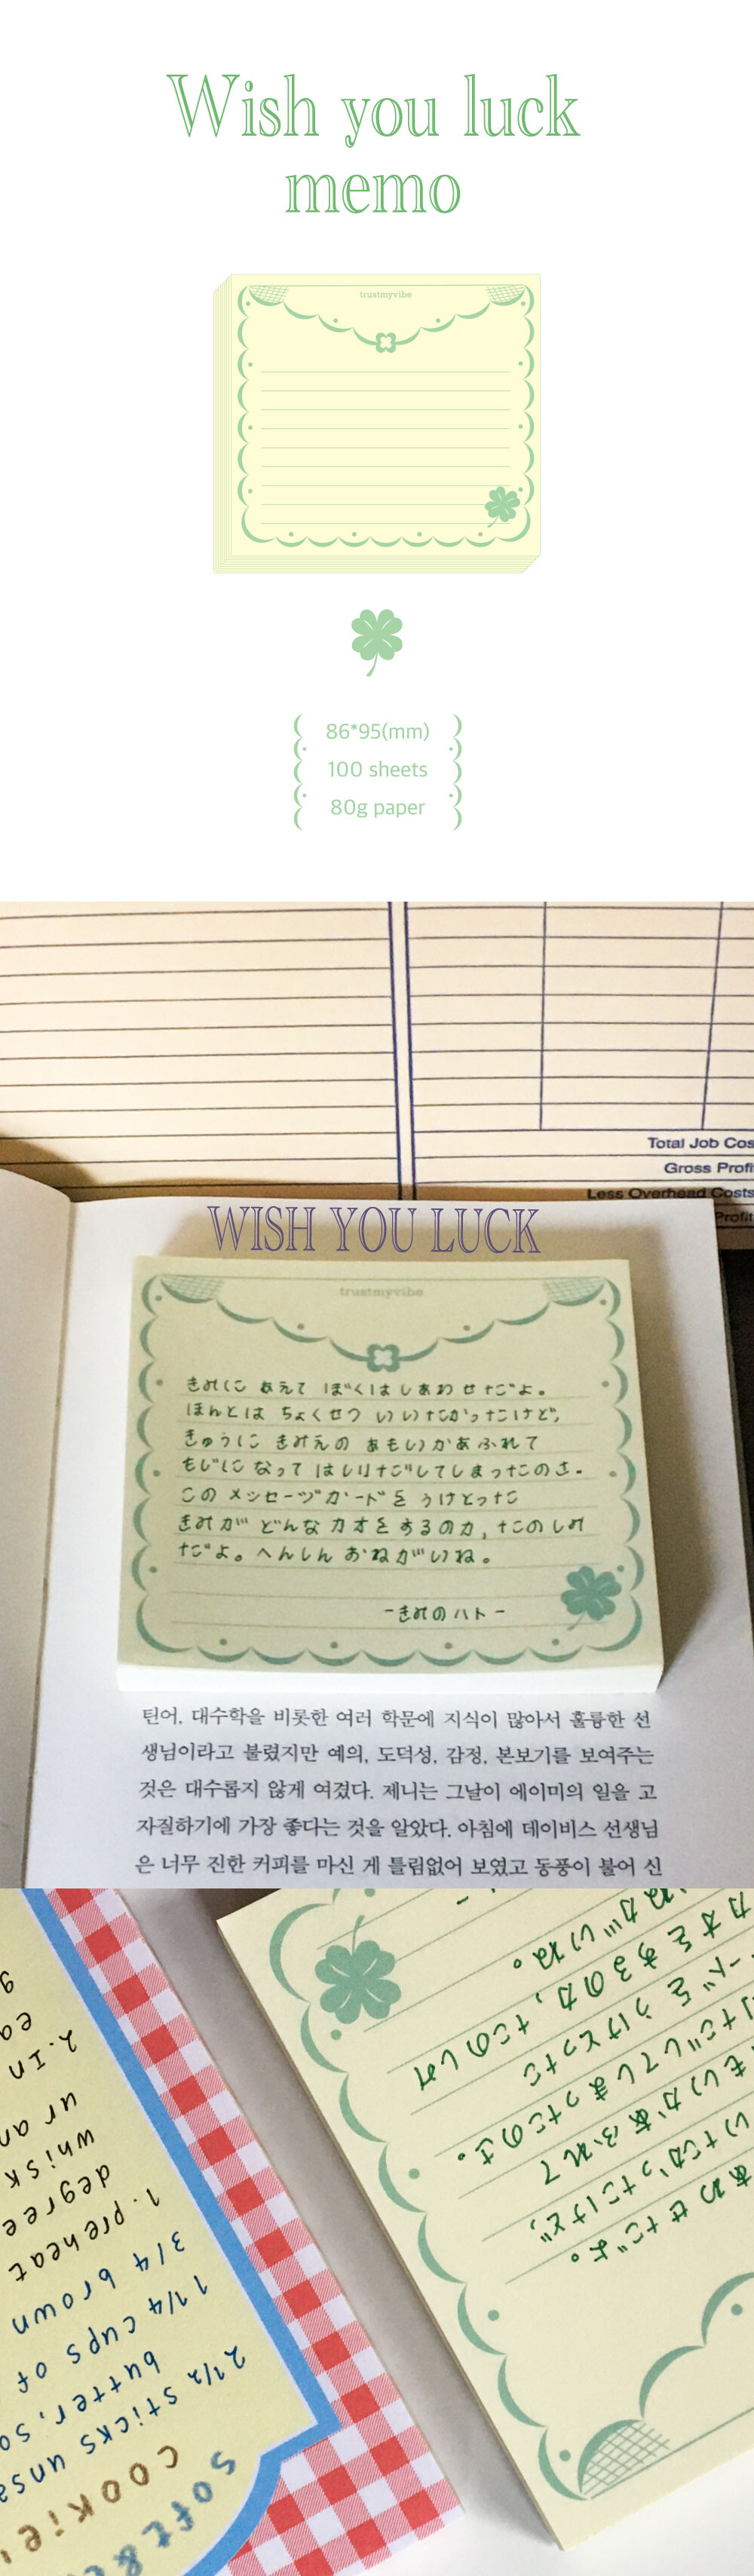 Wish you luck
memo
trustmyvibe
86*95(mm)
100 sheets
80g paper
Total Job Cos
Gross Profi
Less Overhead Costs
Profit
WISH YOU LUCK
trustmyvibe
きみに あえて ぼくは しあわせだよ。
ほんとは ちょくせつ いいたかったけど、
きゅうに きみえの おもいが あふれて
もじに なって はしりだしてしまったのさ.
この メッセージカードを うけとった
きみが どんな カオをするのカ, たのしみ
だよ。へんしん おねがいね。
-きみのハト-
틴어, 대수학을 비롯한 여러 학문에 지식이 많아서 훌륭한 선
생님이라고 불렸지만 예의, 도덕성, 감정, 본보기를 보여주는
것은 대수롭지 않게 여겼다. 제니는 그날이 에이미의 일을 고
자질하기에 가장 좋다는 것을 알았다. 아침에 데이비스 선생님
은 너무 진한 커피를 마신 게 틀림없어 보였고 동풍이 불어 신
soft &
cookie
2 1/2 sticks unsa
butter, so
1 1/4 cups of
3/4 brown
1. preheat
degree
whisk
ur an
2. In
ea
g
あわせだよ。
いたかったけど、
もいが あふれて
りだしてしまったのさ.
ードを うけとった
カオをするのカ, たのしみ
ねがいね。